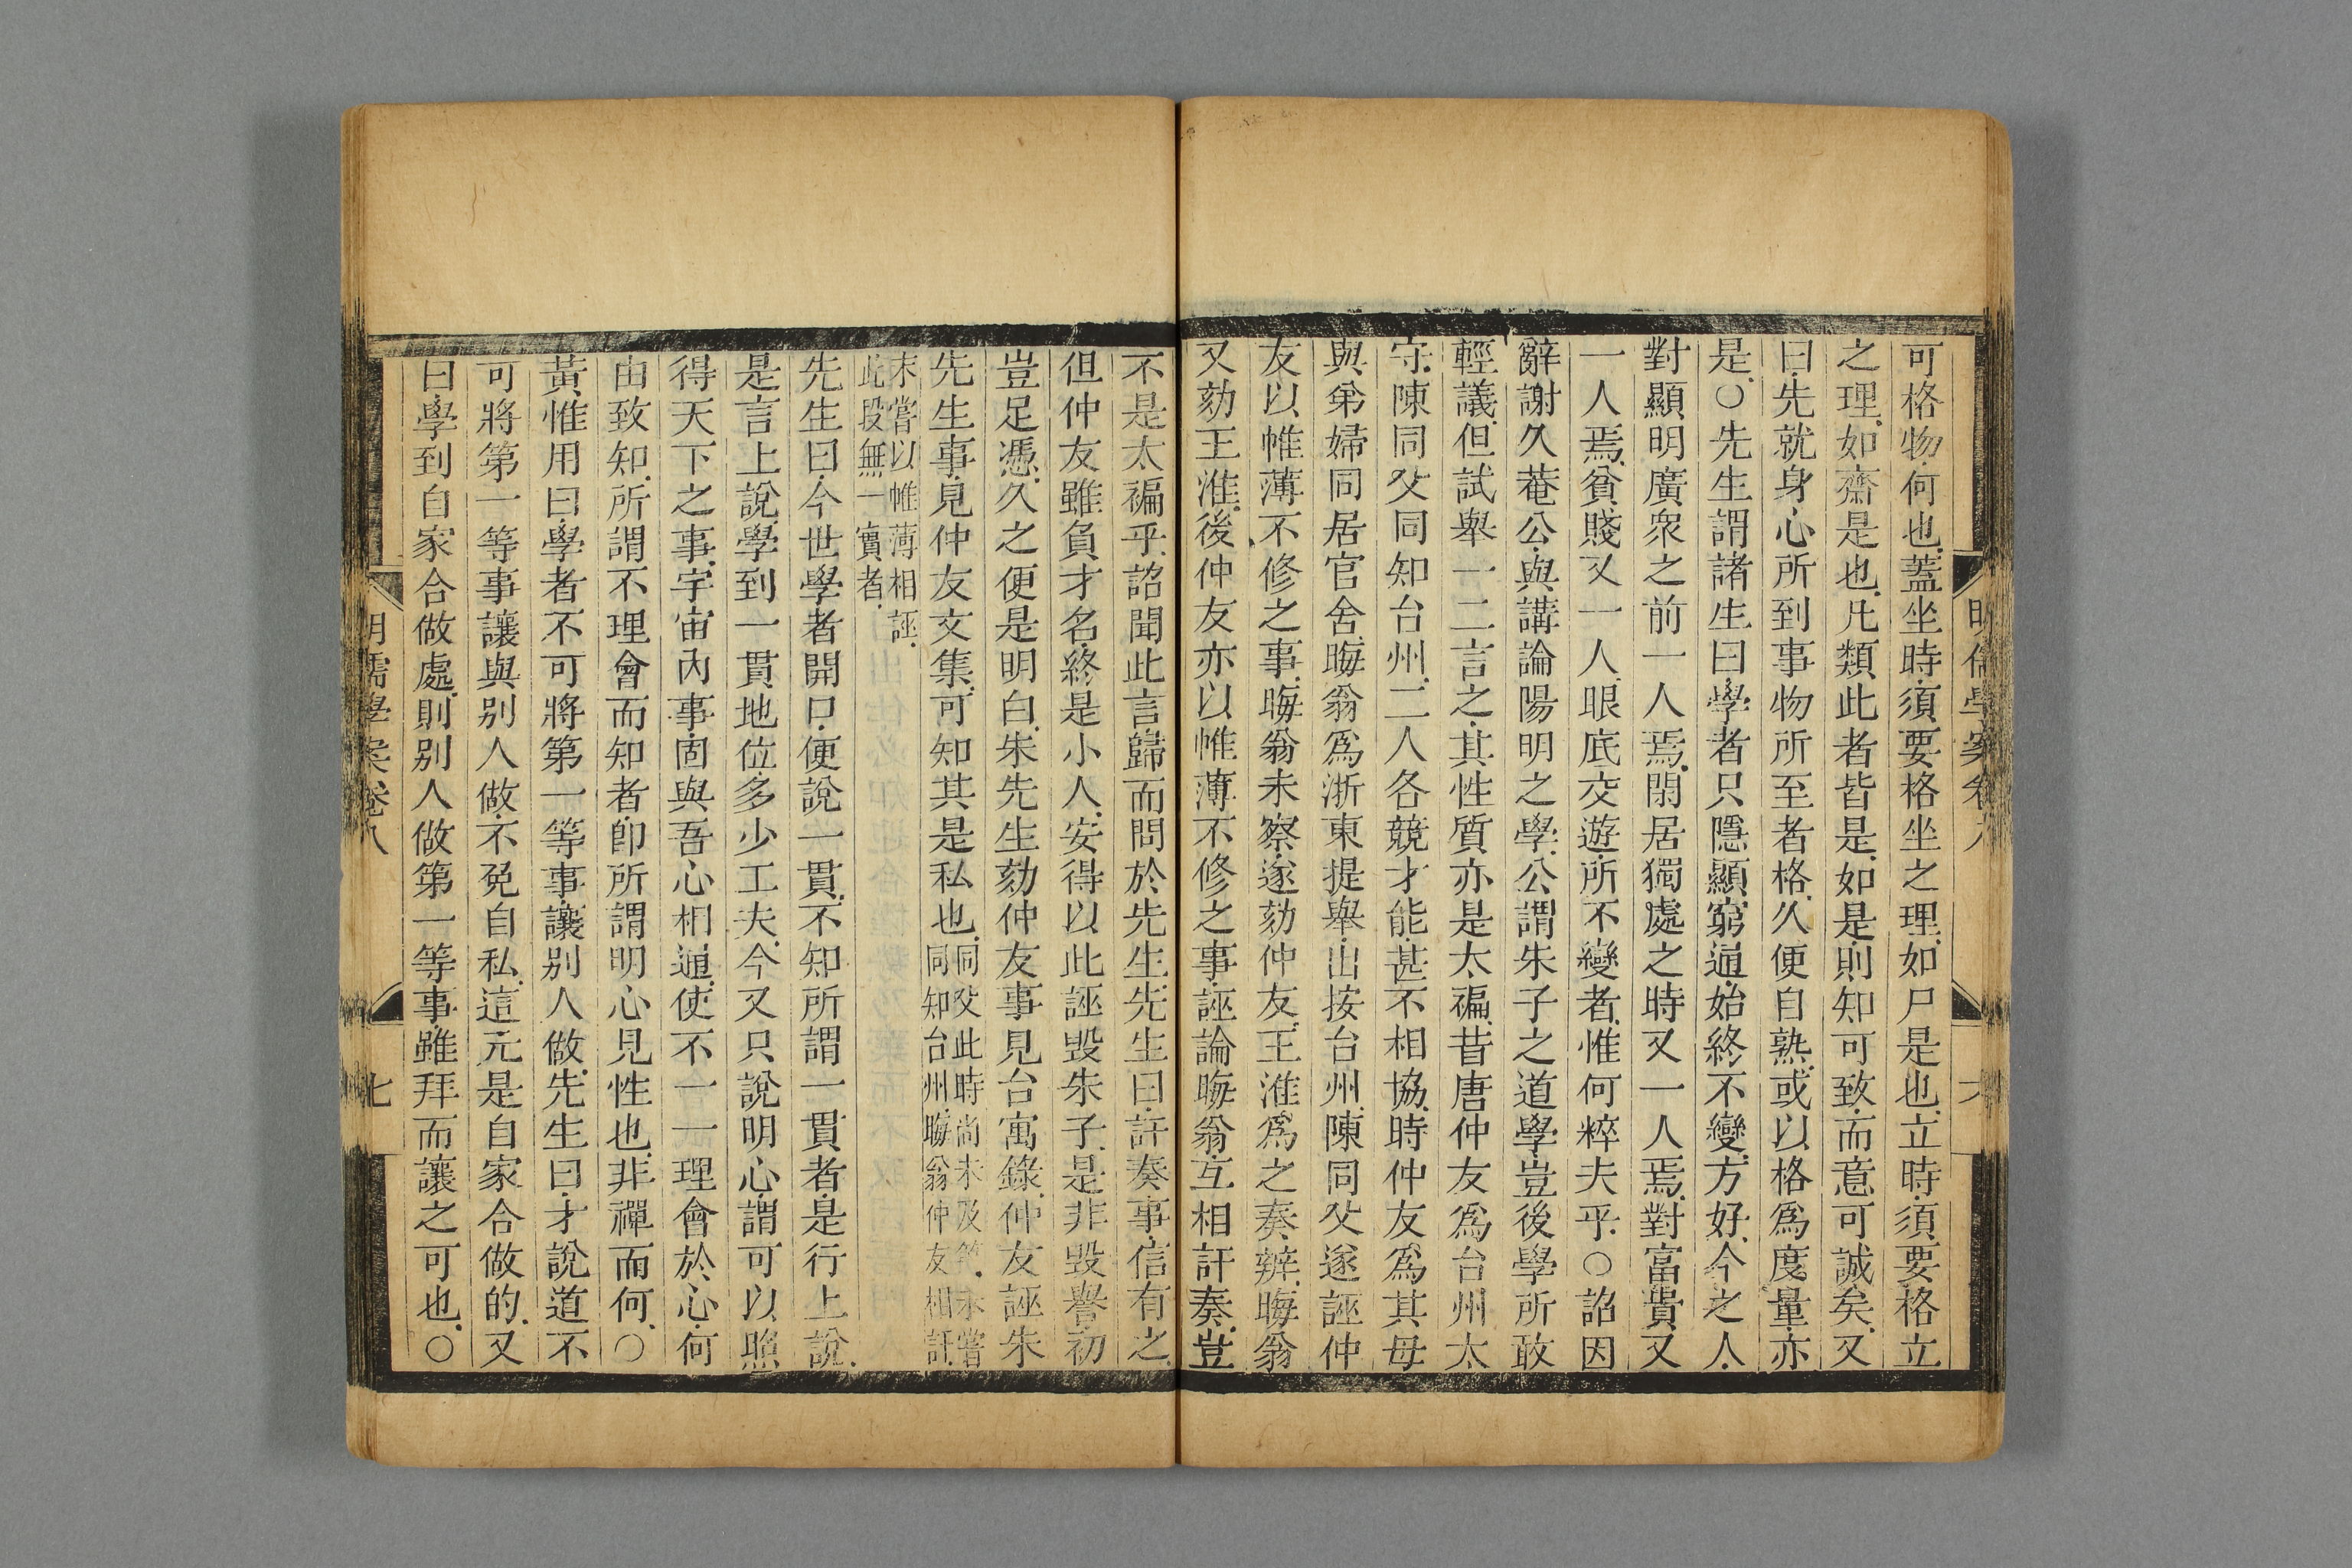 明儒學案卷八
六
可格物何也蓋坐時須要格坐之理如尸是也立時須要格立
之理如齋是也凡類此者皆是如是則知可致而意可誠矣又
曰先就身心所到事物所至者格久便自熟或以格爲度量亦
是○先生謂諸生曰學者只隱顯窮通始終不變方好今之人
對顯明廣衆之前一人焉閒居獨處之時又一人焉對富貴又
一人焉貧賤又一人眼底交遊所不變者惟何粹夫乎○詔因
辭謝久菴公與講論陽明之學公謂朱子之道學豈後學所敢
輕議但試舉一二言之其性質亦是太褊昔唐仲友爲台州太
守陳同父同知台州二人各競才能甚不相協時仲友爲其母
與弟婦同居官舍晦翁爲浙東提舉出按台州陳同父遂誣仲
友以帷薄不修之事晦翁未察遂劾仲友王淮爲之奏辨晦翁
又劾王淮後仲友亦以帷薄不修之事誣論晦翁互相訐奏豈
不是太褊乎詔聞此言歸而問於先生先生曰訐奏事信有之
但仲友雖負才名終是小人安得以此誣毀朱子是非毀譽初
豈足憑久之便是明白朱先生劾仲友事見台寓錄仲友誣朱
先生事見仲友文集可知其是私也同父此時尚未及第未嘗
同知台州晦翁仲友相訐
未嘗以帷薄相誣
此段無一實者
先生曰今世學者開口便說一貫不知所謂一貫者是行上說
是言上說學到一貫地位多少工夫今又只說明心謂可以照
得天下之事宇宙內事固與吾心相通使不一一理會於心何
由致知所謂不理會而知者卽所謂明心見性也非禪而何○
黃惟用曰學者不可將第一等事讓別人做先生曰才說道不
可將第一等事讓與別人做不免自私這元是自家合做的又
曰學到自家合做處則別人做第一等事雖拜而讓之可也○
明儒學案卷八
七